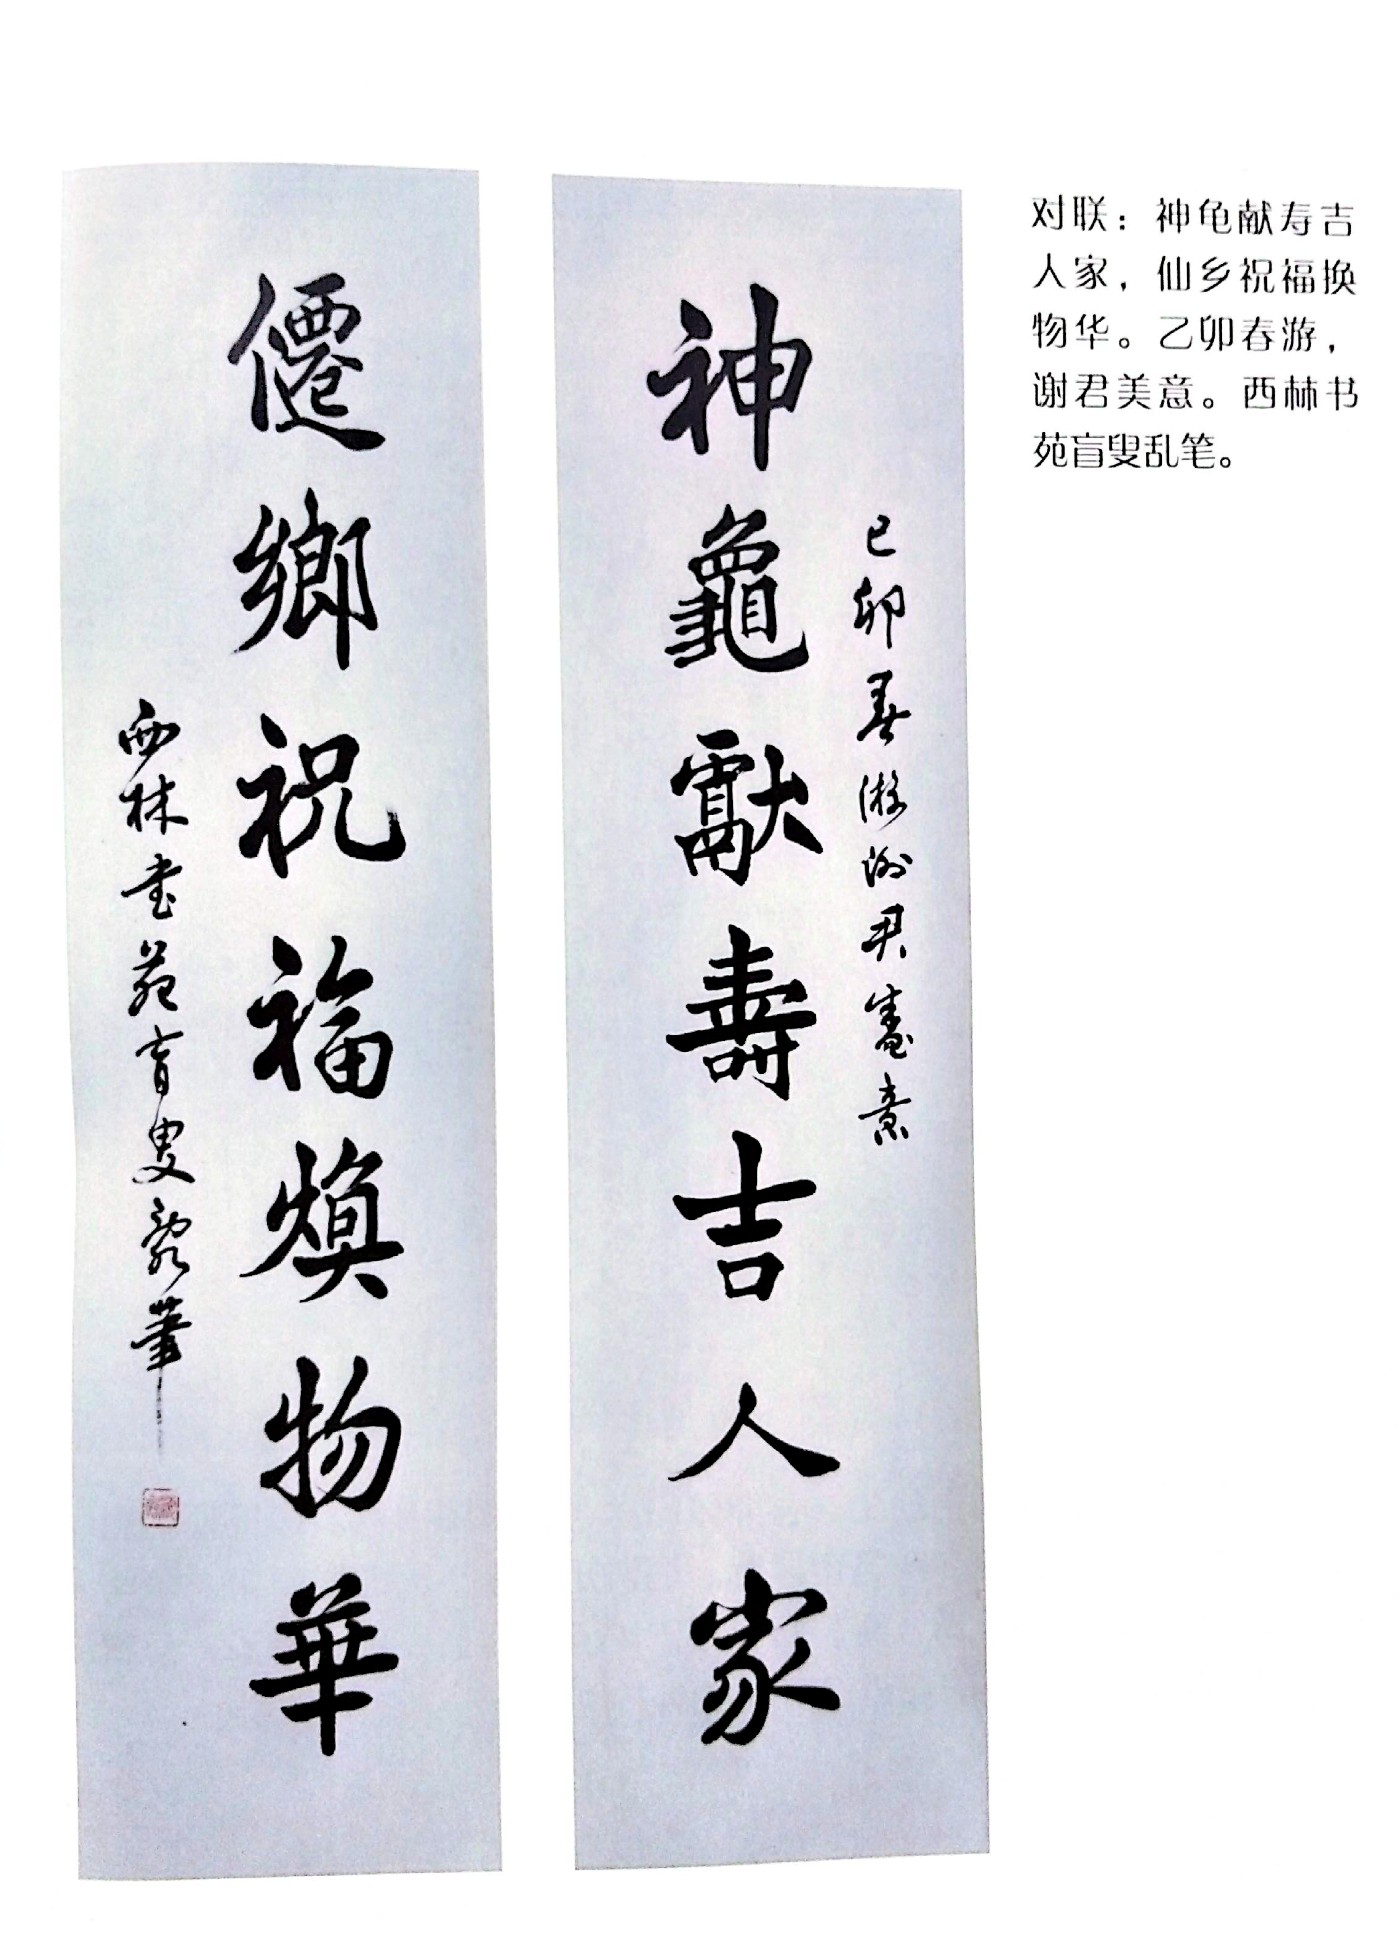 对联：神龟献寿吉
人家，仙乡祝福换
物华。乙卯春游，
谢君美意。西林书
苑盲叟乱笔。
己卯春游谢君盛意
神龜獻壽吉人家
僊鄉祝福煥物華
西林书苑盲叟乱筆